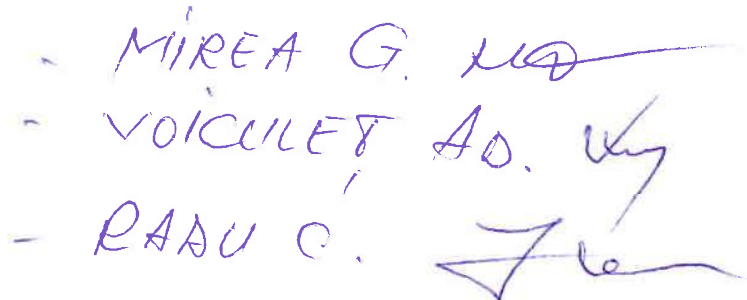 - MIREA G.
- VOICULEȚ AD.
- RADU C.